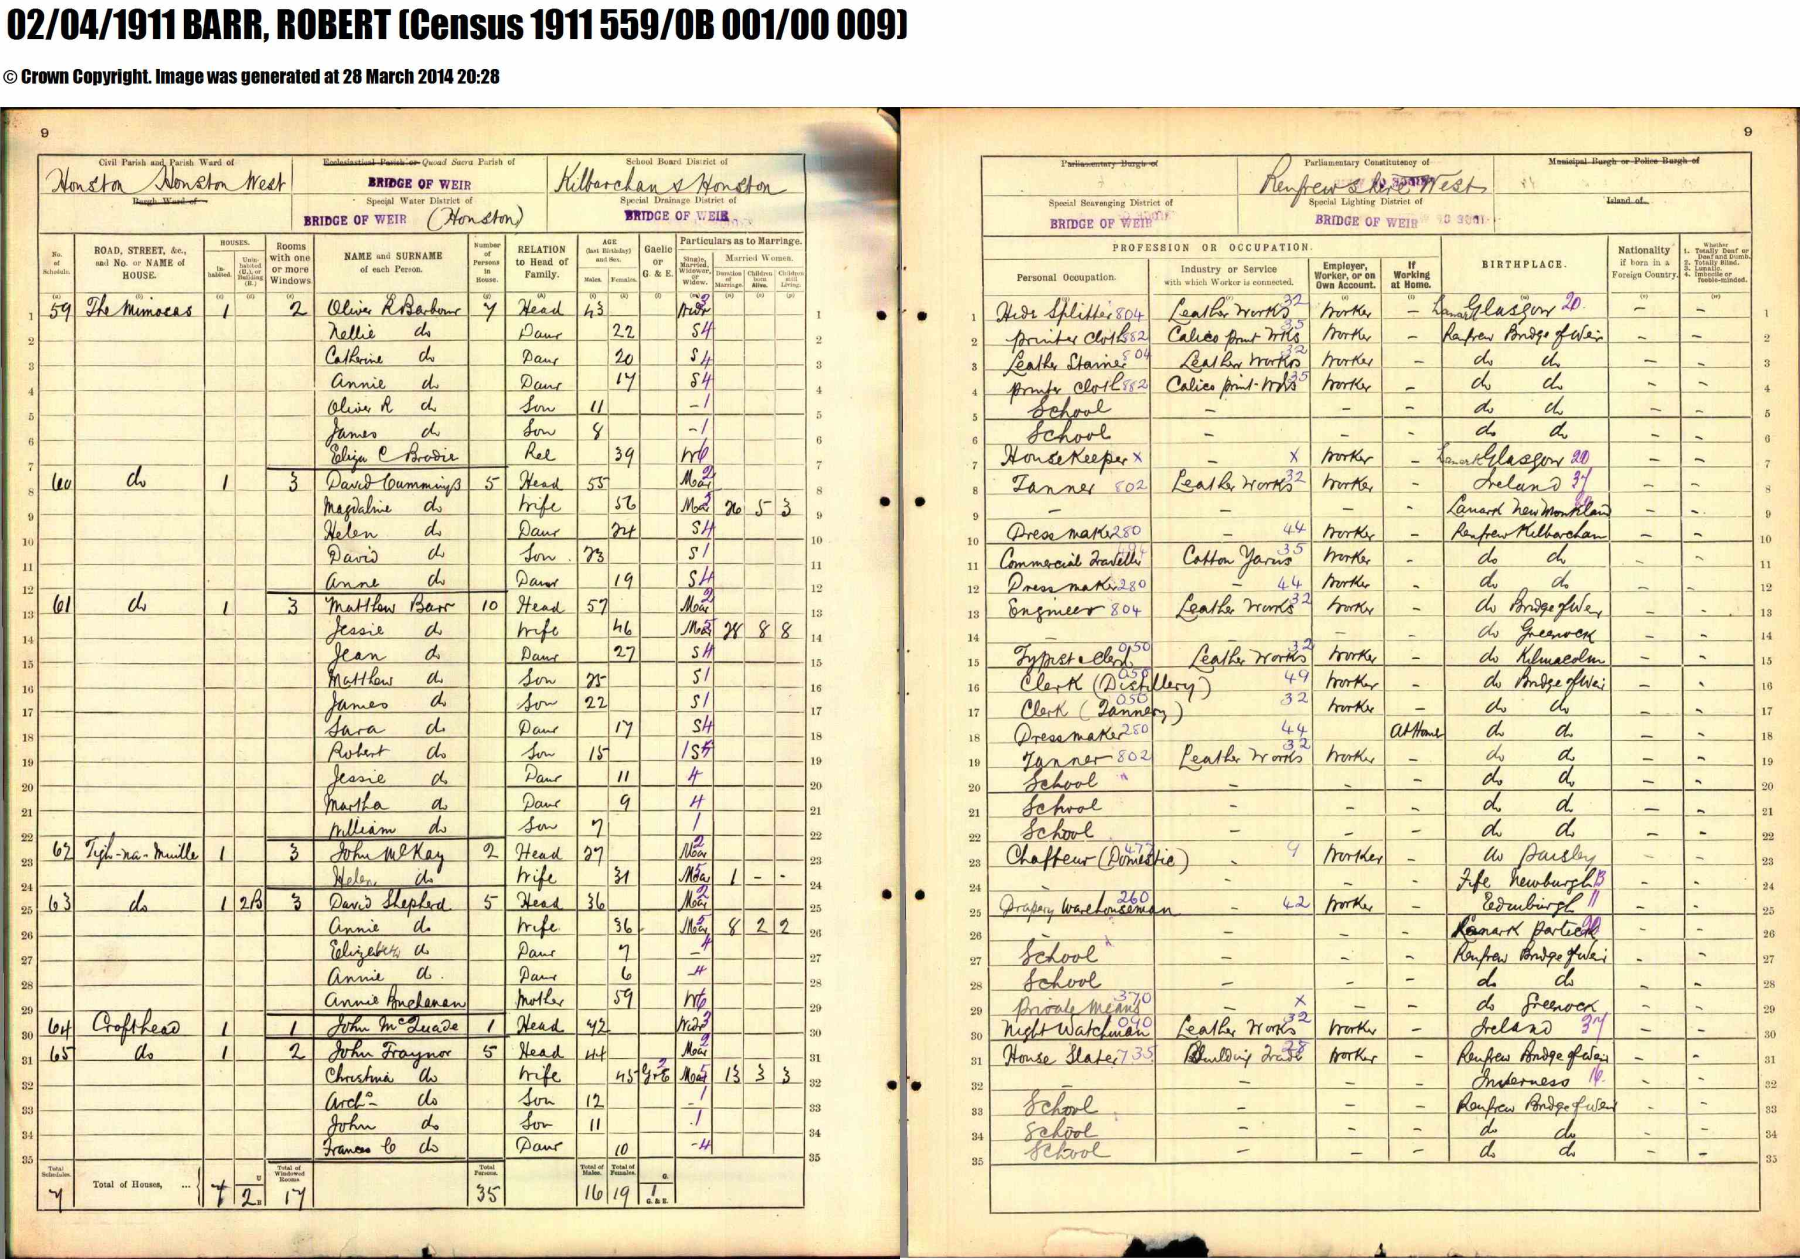 02/04/1911 BARR, ROBERT (Census 1911 559/0B 001/00 009)
© Crown Copyright. Image was generated at 28 March 2014 20:28
9
Civil Parish and Parish Ward of
Houston Houston West
Burgh Ward of
Ecclesiastical Parish or Quoad Sacra Parish of
BRIDGE OF WEIR
Special Water District of
BRIDGE OF WEIR (Houston)
School Board District of
Kilbarchan & Houston
Special Drainage District of
BRIDGE OF WEIR
No. of Schedule. ROAD, STREET, &c., and No. or NAME of HOUSE. HOUSES. Inhabited. Uninhabited (U.), or Building (B.) Rooms with one or more Windows NAME and SURNAME of each Person. Number of Persons in House. RELATION to Head of Family. AGE (last Birthday) and Sex. Males. Females. Gaelic or G. & E. Particulars as to Marriage. Single, Married, Widower, or Widow. Married Women. Duration of Marriage. Children born Alive. Children still Living.
1 59 The Mimosas 1 2 Oliver R Barbour 7 Head 43 Widr 3 1
2 Nellie do Daur 22 S 4 2
3 Catherine do Daur 20 S 4 3
4 Annie do Daur 17 S 4 4
5 Oliver R do Son 11 - 1 5
6 James do Son 8 - 1 6
7 Eliza C Brodie Rel 39 W 6 7
8 60 do 1 3 David Cummings 5 Head 55 Mar 2 8
9 Magdaline do Wife 56 Mar 5 26 5 3 9
10 Helen do Daur 24 S 4 10
11 David do Son 23 S 1 11
12 Anne do Daur 19 S 4 12
13 61 do 1 3 Matthew Barr 10 Head 57 Mar 2 13
14 Jessie do Wife 46 Mar 5 28 8 8 14
15 Jean do Daur 27 S 4 15
16 Matthew do Son 25 S 1 16
17 James do Son 22 S 1 17
18 Sara do Daur 17 S 4 18
19 Robert do Son 15 1 S 19
20 Jessie do Daur 11 4 20
21 Martha do Daur 9 4 21
22 William do Son 7 1 22
23 62 Tigh-na-Muille 1 3 John McKay 2 Head 27 Mar 2 23
24 Helen do Wife 31 Mar 5 1 - - 24
25 63 do 1 2B 3 David Shepherd 5 Head 36 Mar 2 25
26 Annie do Wife 36 Mar 5 8 2 2 26
27 Elizabeth do Daur 7 - 4 27
28 Annie do Daur 6 - 4 28
29 Annie Buchanan Mother 59 W 6 29
30 64 Crofthead 1 1 John McQuade 1 Head 42 Widr 3 30
31 65 do 1 2 John Traynor 5 Head 44 Mar 2 31
32 Christina do Wife 45 G&E 2 Mar 5 13 3 3 32
33 Archd do Son 12 - 1 33
34 John do Son 11 - 1 34
35 Frances C do Daur 10 - 4 35
Total Schedules. 7 Total of Houses, ... 7 2 U B Total of Windowed Rooms 17 Total Persons. 35 Total of Males. 16 Total of Females. 19 G. 1 G. & E.
9
Parliamentary Burgh of
Parliamentary Constituency of
Renfrewshire West
Municipal Burgh or Police Burgh of
Special Scavenging District of
BRIDGE OF WEIR
Special Lighting District of
BRIDGE OF WEIR
Island of
PROFESSION OR OCCUPATION. Personal Occupation. Industry or Service with which Worker is connected. Employer, Worker, or on Own Account. If Working at Home. BIRTHPLACE. Nationality if born in a Foreign Country. Whether 1. Totally Deaf or Deaf and Dumb. 2. Totally Blind. 3. Lunatic. 4. Imbecile or Feeble-minded.
1 Hide Splitter 804 Leather Works 32 Worker - Lanark Glasgow 20 - - 1
2 printer cloth 882 Calico print Wks 35 Worker - Renfrew Bridge of Weir - - 2
3 Leather Stainer 804 Leather Works 32 Worker - do do - - 3
4 printer cloth 882 Calico print-Wks 35 Worker - do do - - 4
5 School - - - do do - - 5
6 School - - - do do - - 6
7 HouseKeeper x - x Worker - Lanark Glasgow 20 - - 7
8 Tanner 802 Leather Works 32 Worker - Ireland 37 - - 8
9 - - - - Lanark New Monkland - - 9
10 Dressmaker 280 - 44 Worker - Renfrew Kilbarchan - - 10
11 Commercial Traveller Cotton Yarns 35 Worker - do do - - 11
12 Dressmaker 280 - 44 Worker - do do - - 12
13 Engineer 804 Leather Works 32 Worker - do Bridge of Weir - - 13
14 - - - - do Greenock - - 14
15 Typist & Clerk 050 Leather Works 32 Worker - do Kilmacolm - - 15
16 Clerk (Distillery) 050 49 Worker - do Bridge of Weir - - 16
17 Clerk (Tannery) 050 32 Worker - do do - - 17
18 Dressmaker 280 44 At Home do do - - 18
19 Tanner 802 Leather Works 32 Worker - do do - - 19
20 School - - - do do - - 20
21 School - - - do do - - 21
22 School - - - do do - - 22
23 Chaffeur (Domestic) - 9 Worker - do Paisley - - 23
24 - - - - Fife Newburgh 13 - - 24
25 Drapery Warehouseman 260 - 42 Worker - Edinburgh 11 - - 25
26 - - - - Lanark Partick - - 26
27 School - - - Renfrew Bridge of Weir - - 27
28 School - - - do do - - 28
29 Private Means 370 - x - - do Greenock - - 29
30 Night Watchman 040 Leather Works 32 Worker - Ireland 37 - - 30
31 House Slater 735 Building Trade 28 Worker - Renfrew Bridge of Weir - - 31
32 - - - - Inverness 16 - - 32
33 School - - - Renfrew Bridge of Weir - - 33
34 School - - - do do - - 34
35 School - - - do do - - 35